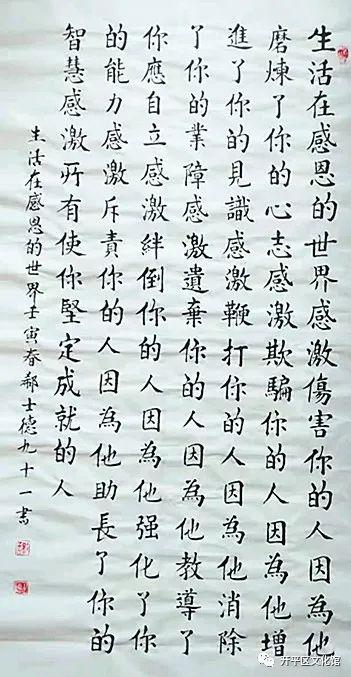 生活在感恩的世界感激傷害你的人因為他
磨煉了你的心志感激欺騙你的人因為他增
進了你的見識感激鞭打你的人因為他消除
了你的業障感激遺棄你的人因為他教導了
你應自立感激絆倒你的人因為他强化了你
的能力感激斥責你的人因為他助長了你的
智慧感激所有使你堅定成就的人
生活在感恩的世界壬寅春郝士德九十一書
开平区文化馆